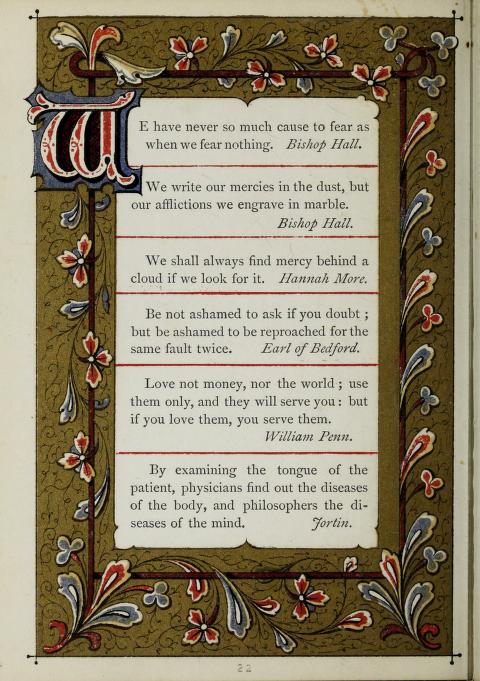 WE have never so much cause to fear as
when we fear nothing. Bishop Hall.
We write our mercies in the dust, but
our afflictions we engrave in marble.
Bishop Hall.
We shall always find mercy behind a
cloud if we look for it. Hannah More.
Be not ashamed to ask if you doubt ;
but be ashamed to be reproached for the
same fault twice. Earl of Bedford.
Love not money, nor the world ; use
them only, and they will serve you : but
if you love them, you serve them.
William Penn.
By examining the tongue of the
patient, physicians find out the diseases
of the body, and philosophers the di-
seases of the mind. Jortin.
22